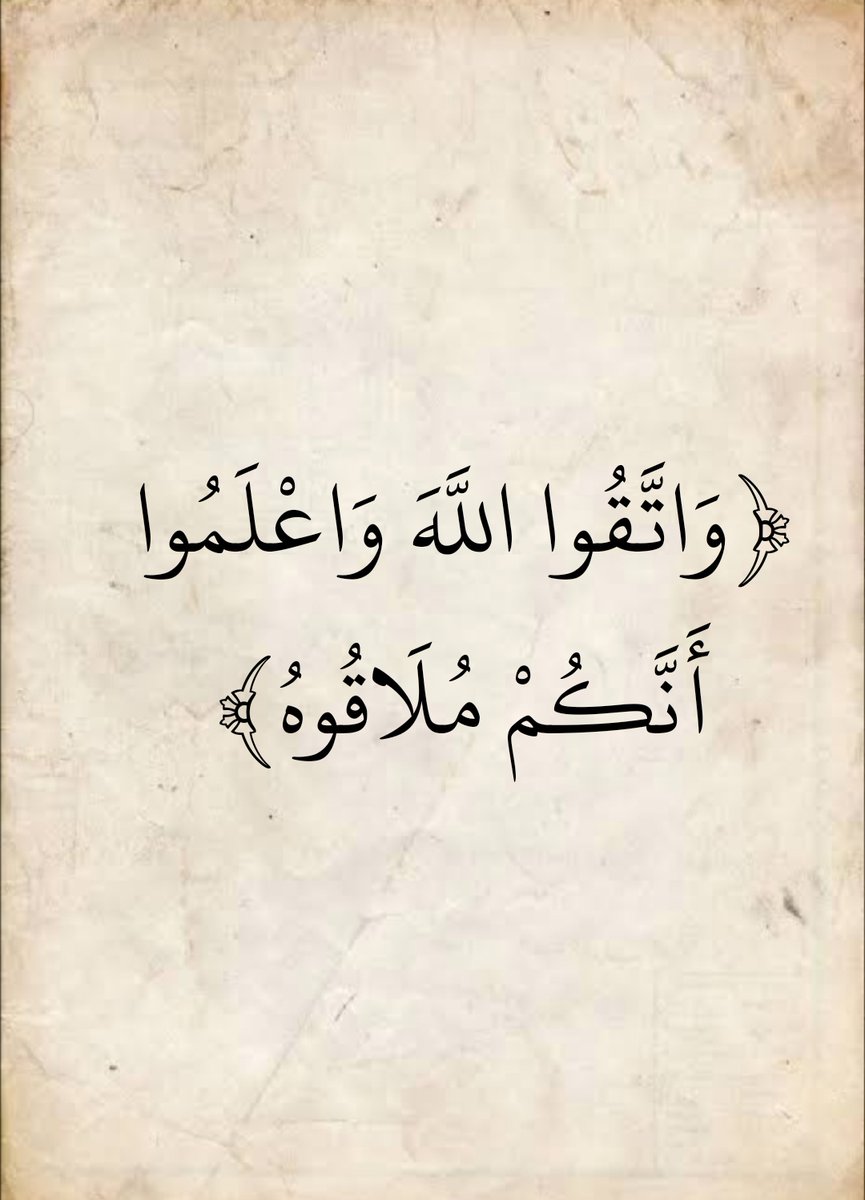 ﴿وَاتَّقُوا اللَّهَ وَاعْلَمُوا
أَنَّكُمْ مُلَاقُوهُ﴾